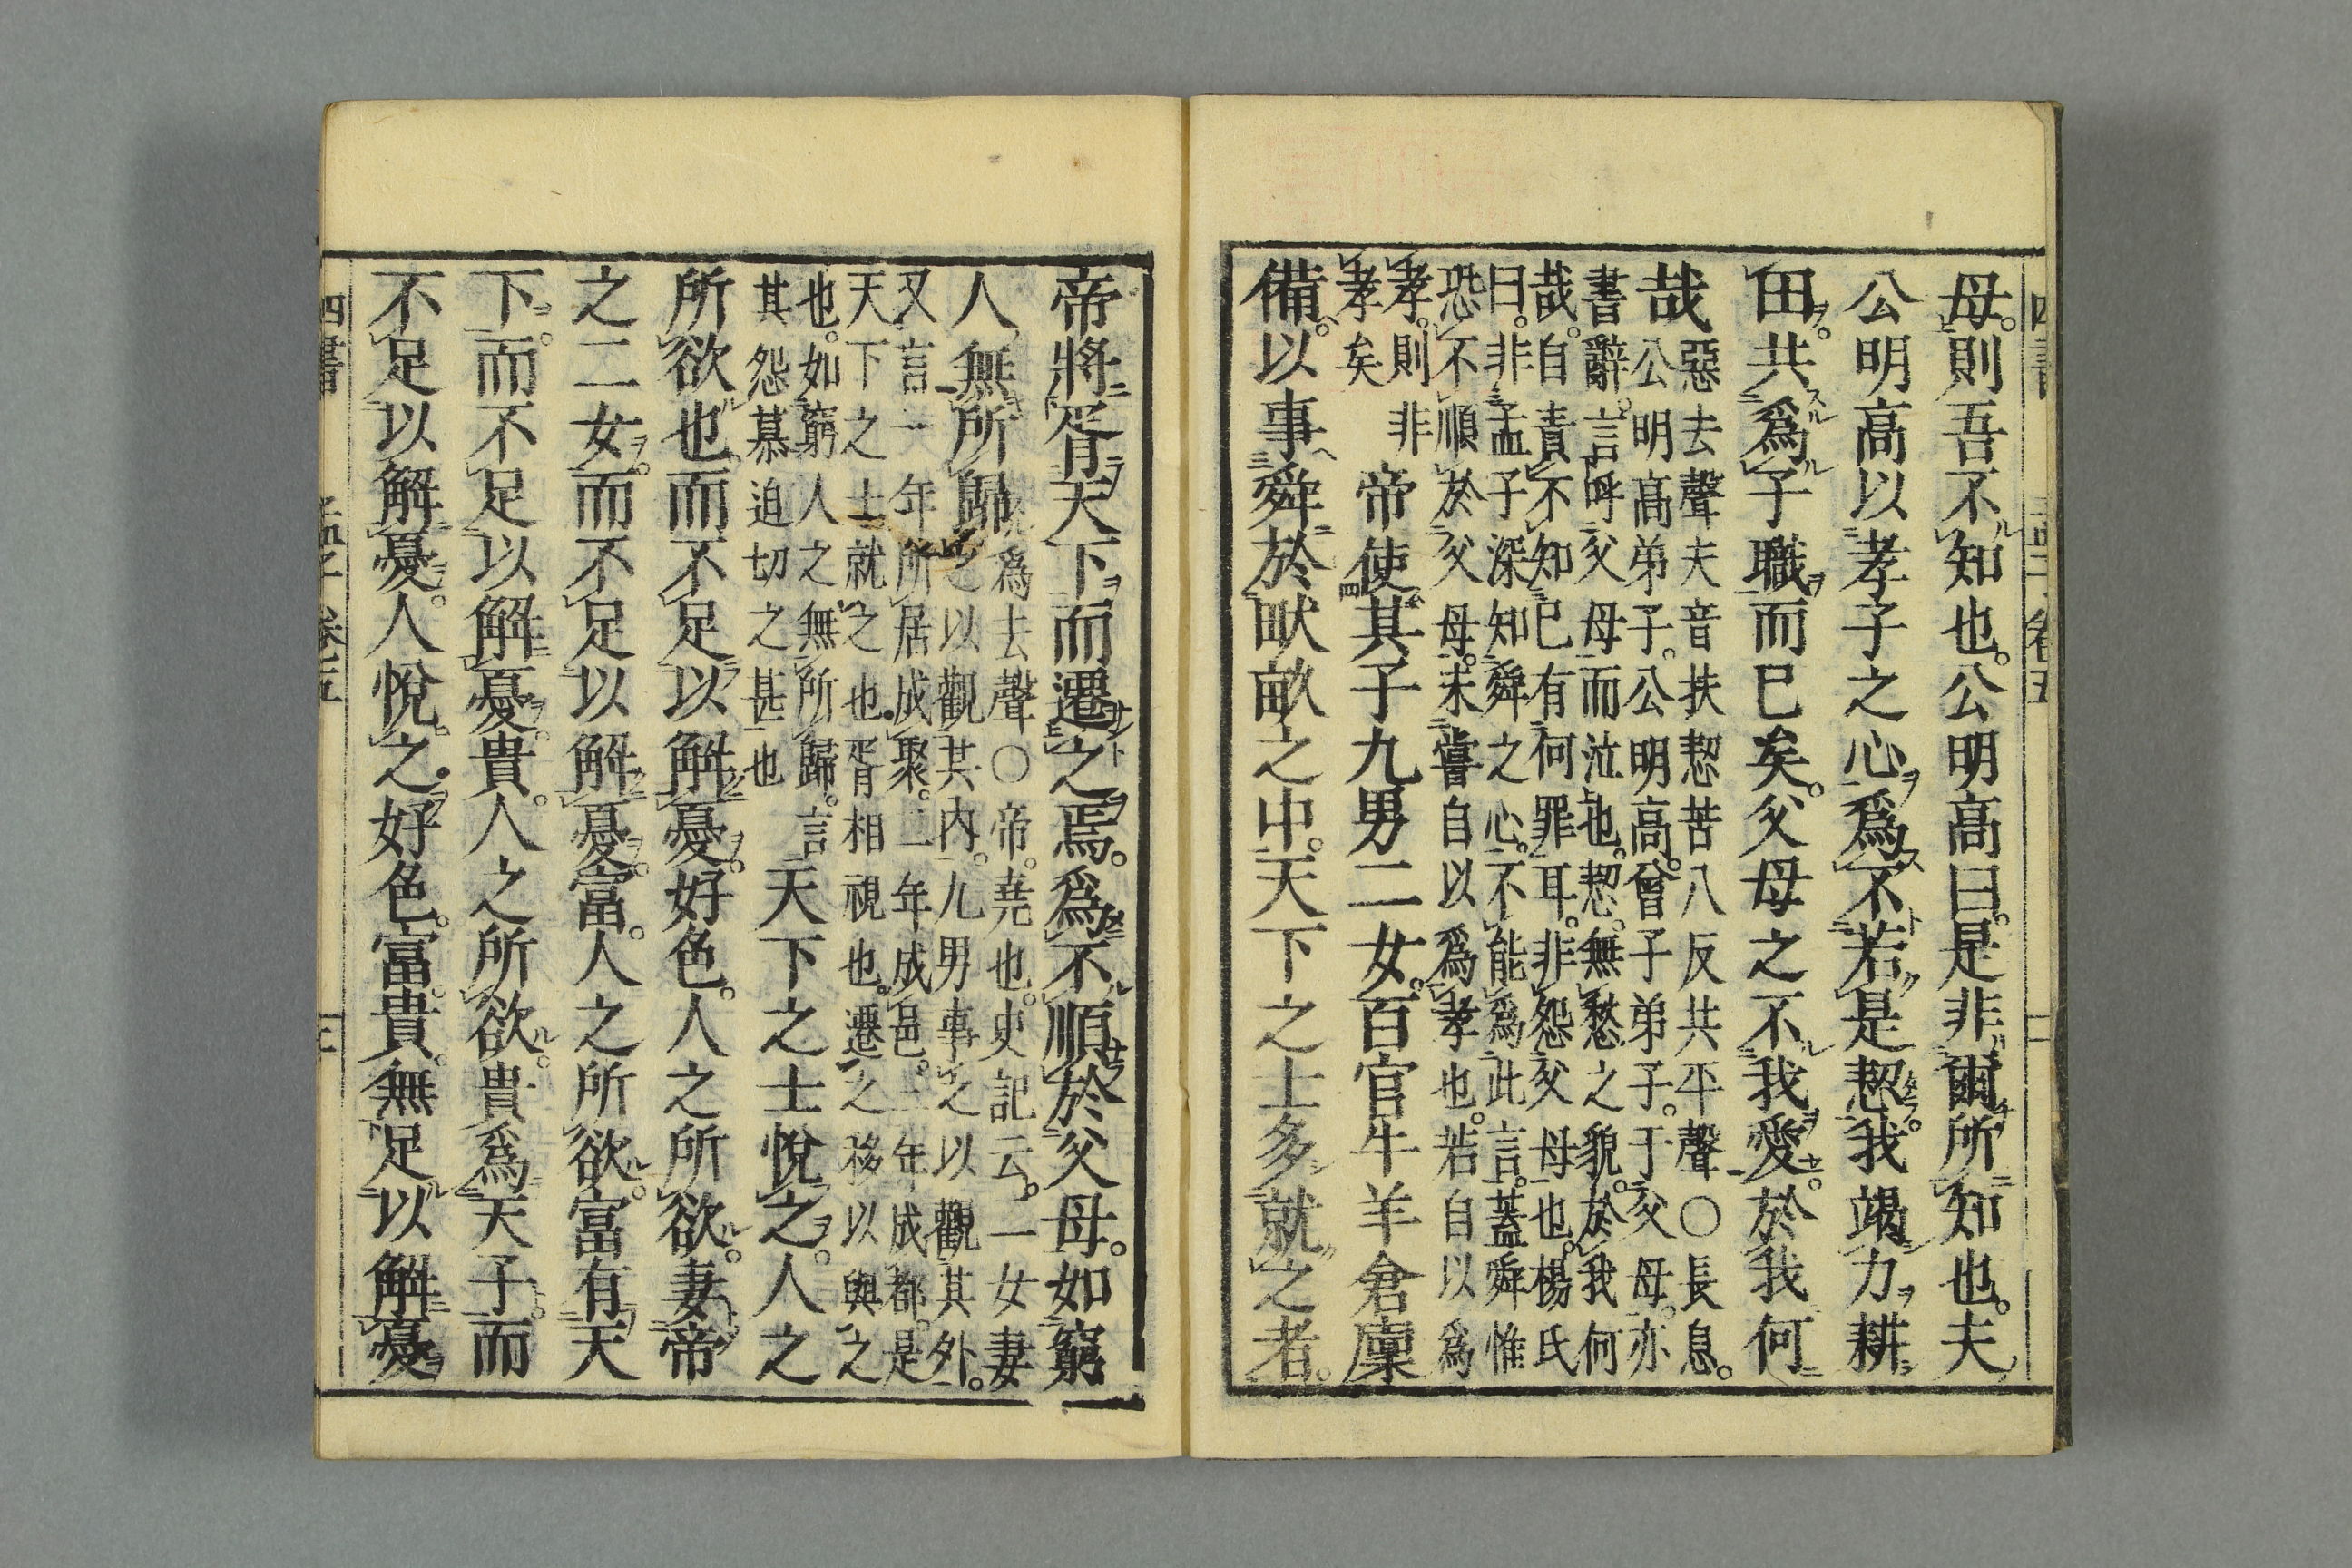 母則吾不知也公明高曰是非爾所知也夫
公明高以孝子之心爲不若是恝我竭力耕
田共爲子職而已矣父母之不我愛於我何
哉
惡去聲夫音扶恝苦八反共平聲○長息
公明高弟子公明高曾子弟子于父母亦
書辭言呼父母而泣也恝無愁之貌於我何
哉自責不知已有何罪耳非怨父母也楊氏
曰非孟子深知舜之心不能爲此言蓋舜惟
恐不順於父母未嘗自以爲孝也若自以爲
孝則非
孝矣
帝使其子九男二女百官牛羊倉廩
備以事舜於畎畝之中天下之士多就之者
帝將胥天下而遷之焉爲不順於父母如窮
人無所歸
爲去聲○帝堯也史記云二女妻
之以觀其內九男事之以觀其外
又言一年所居成聚二年成邑三年成都是
天下之士就之也胥相視也遷之移以與之
也如窮人之無所歸言
其怨慕迫切之甚也
天下之士悅之人之
所欲也而不足以解憂好色人之所欲妻帝
之二女而不足以解憂富人之所欲富有天
下而不足以解憂貴人之所欲貴爲天子而
不足以解憂人悅之好色富貴無足以解憂
四書 孟子 卷五 三